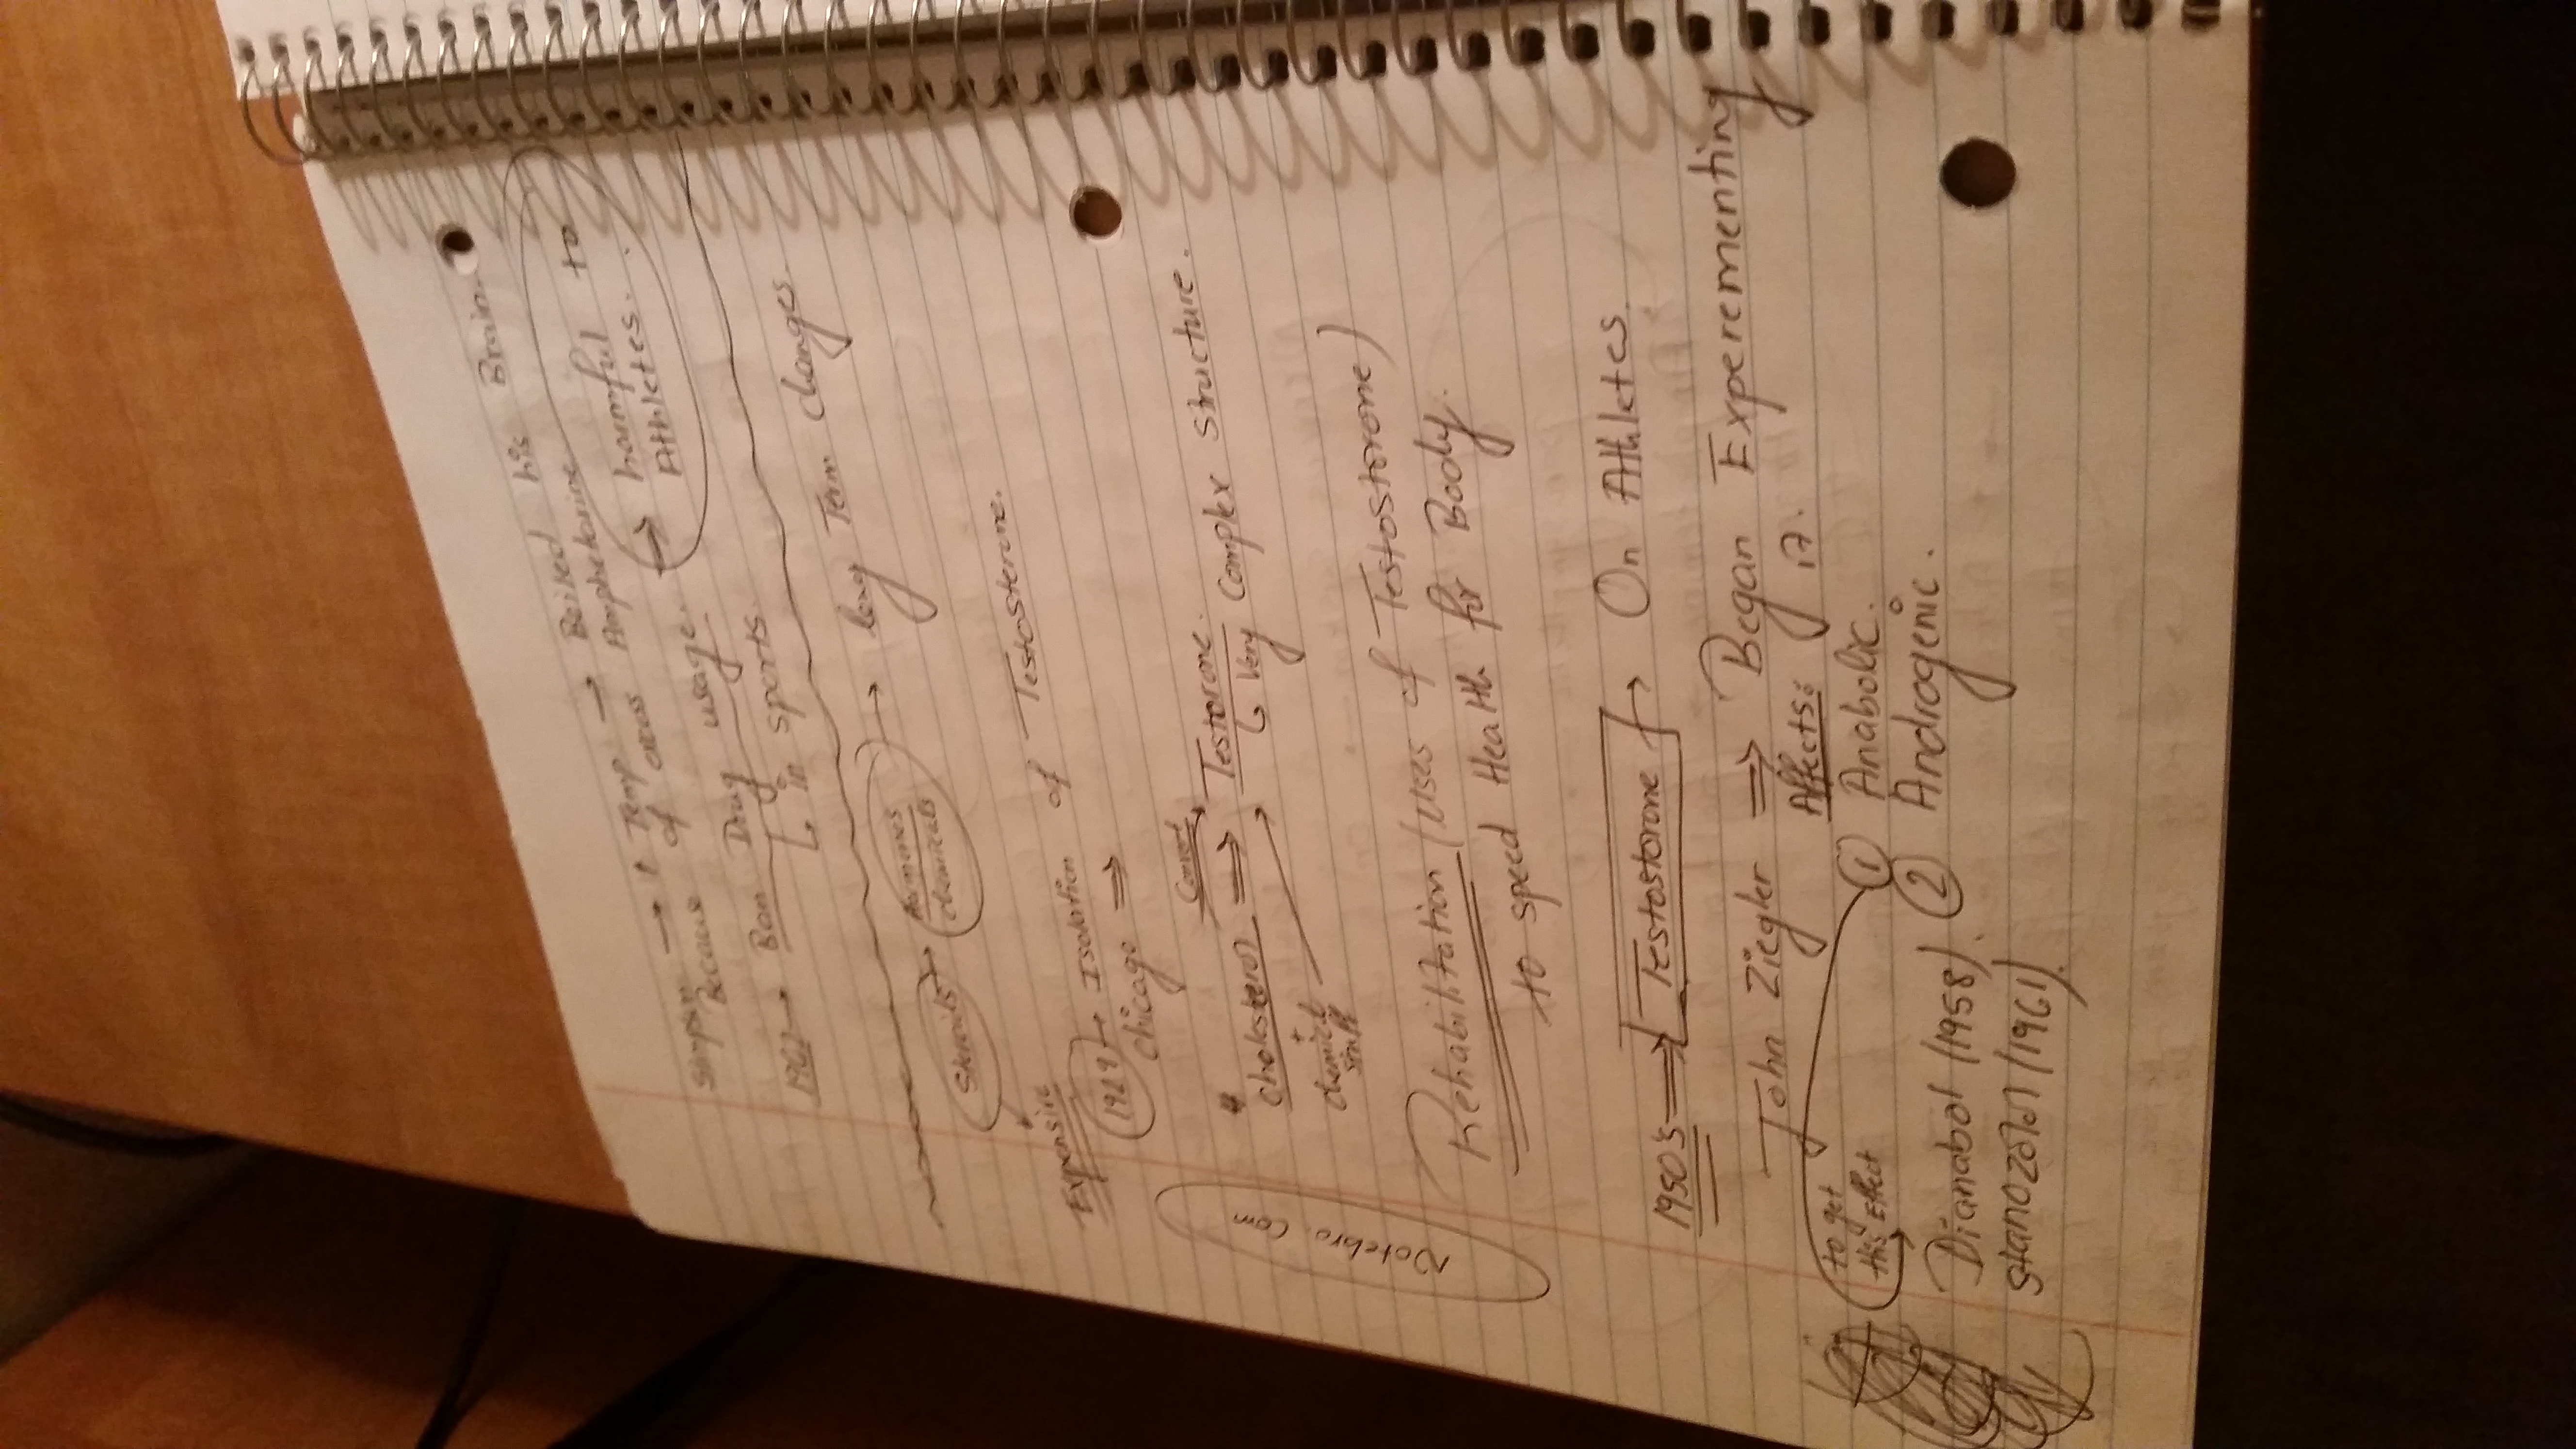 Simpson → ↑ Temp → Boiled his Brain.
Because of excess Amphetamine
usage. → harmful to
Athletes.
1967 → Ban Drug
↳ in sports.
Steroids → hormones
chemicals → long Term changes.
Expensive
1929 → Isolation of Testosterone.
Chicago ⇒
Convert
cholesterol ⇒ Testorone.
↳ Very Complex structure.
chemical
stuff
Rehabilitation (Uses of Testostorone)
to speed Health for Body.
Rotebro. Com
1950's ⇒ Testostorone → On Athletes.
John Ziegler ⇒ Began Experementing
Affects: it.
① Anabolic.
② Androgenic.
to get
this Effect
Dianabol (1958).
Stanozolol (1961).